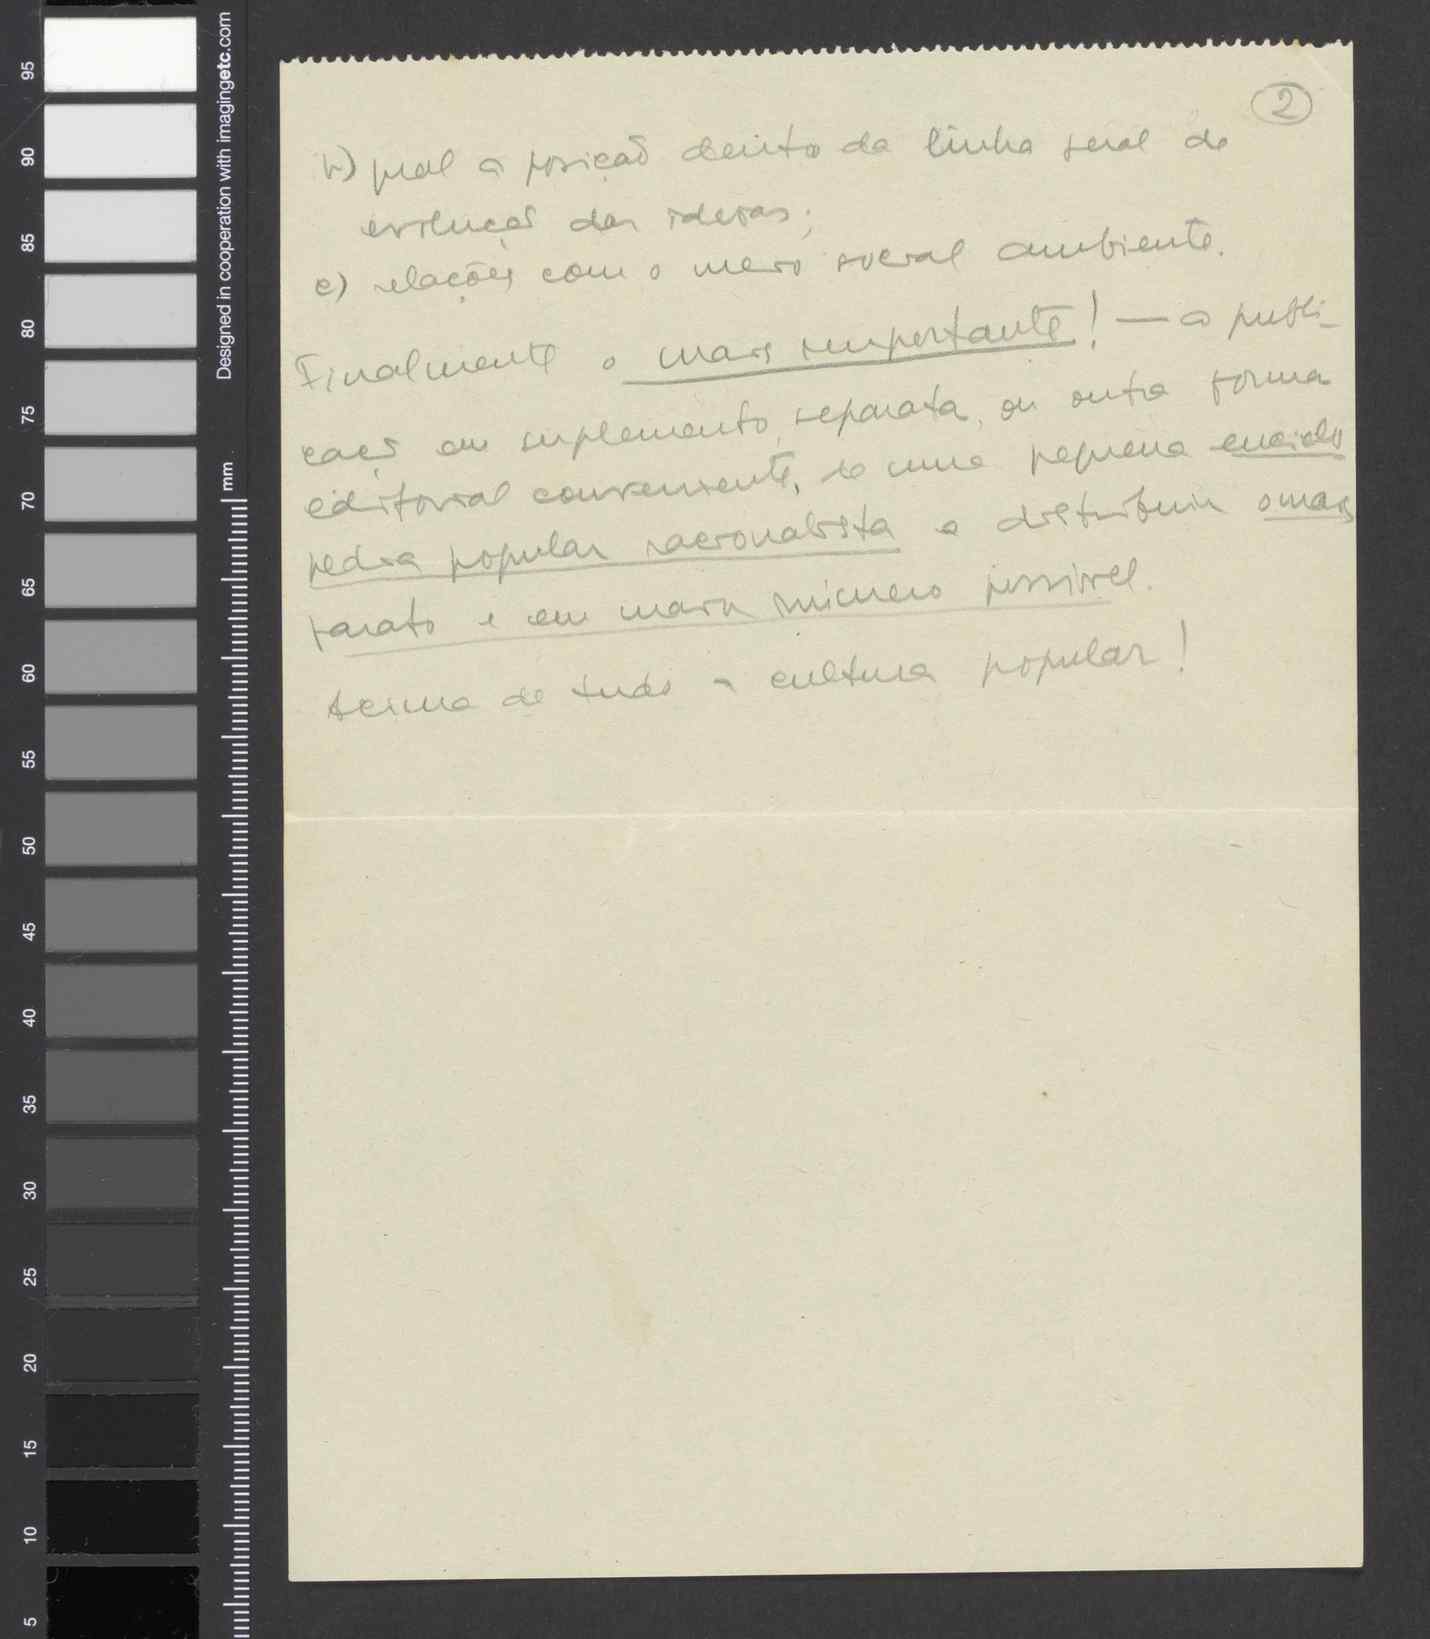 2
b) qual a posição dentro da linha geral da
evolução das ideias;
c) relações com o meio social ambiente.
Finalmente o mais importante! — a publi-
cação em suplemento, separata, ou outra forma
editorial conveniente, de uma pequena enciclo
pedia popular racionalista a distribuir o mais
barato e em maior número possível.
Acima de tudo a cultura popular!
Designed in cooperation with imagingetc.com
mm
95
90
85
80
75
70
65
60
55
50
45
40
35
30
25
20
15
10
5